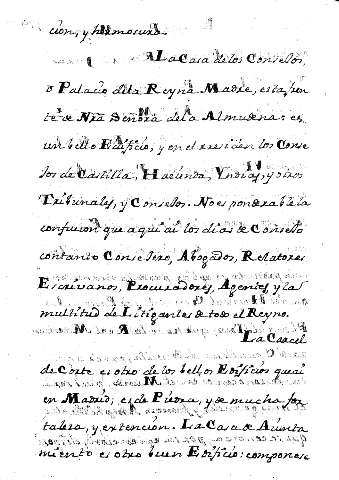 cion, y hermosura.
La Casa de los Consejos,
o Palacio de la Reyna Madre, esta fren
te de Nra Señora de la Almudena: es
un bello Edificio, y en el residen los Conse
jos de Castilla, Hacienda, Yndias, y otros
Tribunales, y Consejos. No es ponderable la
confucion que aqui ai los dias de Consejo
con tanto Consejero, Abogados, Relatores
Escrivanos, Procuradores, Agentes, y la
multitud de Litigantes de todo el Reyno.
La Carcel
de Corte es otro de los bellos Edificios que ai
en Madrid; es de Piedra, y de mucha for
taleza, y extencion. La Casa de Aiunta
miento es otro buen Edificio: componese